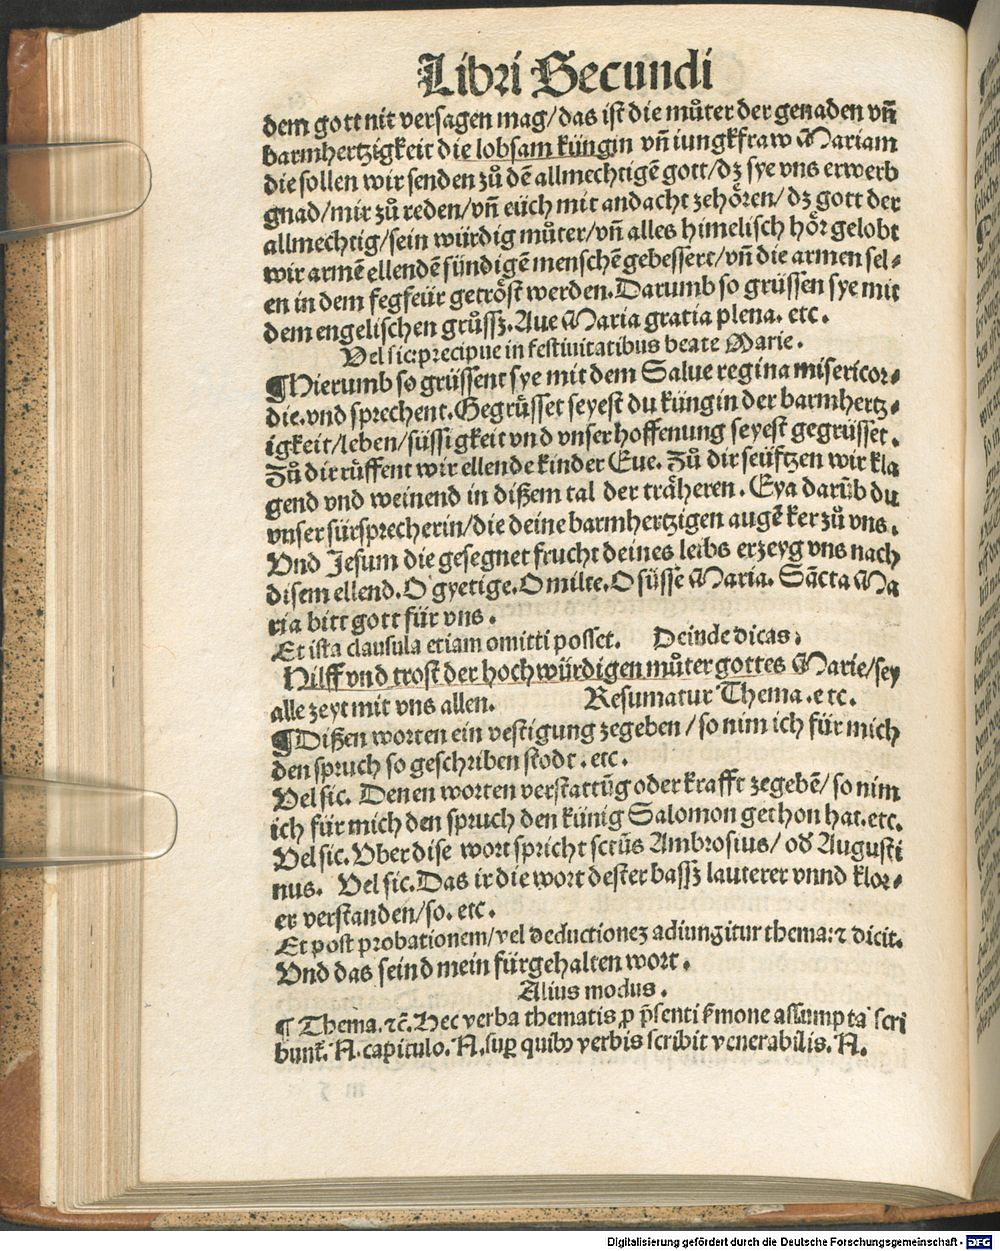 Libri Secundi
dem gott nit versagen mag/das ist die můter der genaden vñ
barmhertzigkeit die lobsam küngin vñ iungkfraw Mariam
die sollen wir senden zů dē allmechtigē gott/dz sye vns erwerb
gnad/mir zů reden/vñ eüch mit andacht zehören/dz gott der
allmechtig/sein würdig můter/vñ alles himelisch hör gelobt
wir armē ellendē sündigē menschē gebessert/vñ die armen sel⸗
en in dem fegfeür getröst werden. Darumb so grüssen sye mit
dem engelischen grůssz. Aue Maria gratia plena. etc.
Vel sic: precipue in festiuitatibus beate Marie.
¶Hierumb so grüssent sye mit dem Salue regina misericor⸗
die. vnd sprechent. Gegrüsset seyest du küngin der barmhertz⸗
igkeit/leben/süssigkeit vnd vnser hoffenung seyest gegrüsset.
Zů dir rüffent wir ellende kinder Eue. Zů dir seüftzen wir kla
gend vnd weinend in dißem tal der träheren. Eya darūb du
vnser fürsprecherin/die deine barmhertzigen augē ker zů vns.
Vnd Jesum die gesegnet frucht deines leibs erzeyg vns nach
disem ellend. O gyetige. O milte. O süsse Maria. Sācta Ma
ria bitt gott für vns.
Et ista clausula etiam omitti posset. Deinde dicas:
Hilff vnd trost der hochwürdigen můter gottes Marie/sey
alle zeyt mit vns allen. Resumatur Thema. etc.
¶Dißen worten ein vestigung zegeben/so nim ich für mich
den spruch so geschriben stodt. etc.
Vel sic. Denen worten verstattūg oder krafft zegebē/so nim
ich für mich den spruch den künig Salomon gethon hat. etc.
Vel sic. Vber dise wort spricht sctūs Ambrosius/ od Augusti
nus. Vel sic. Das ir die wort dester bassz lauterer vnnd klor⸗
er verstanden/so. etc.
Et post probationem/vel deductionez adiungitur thema: ⁊ dicit.
Vnd das seind mein fürgehalten wort.
Alius modus.
¶ Thema. ⁊c̄. Hec verba thematis ꝓ p̄senti ẜmone assumpta scri
bunt̄. N. capitulo. N. suꝑ quibꝰ verbis scribit venerabilis. N.
Digitalisierung gefördert durch die Deutsche Forschungsgemeinschaft - DFG